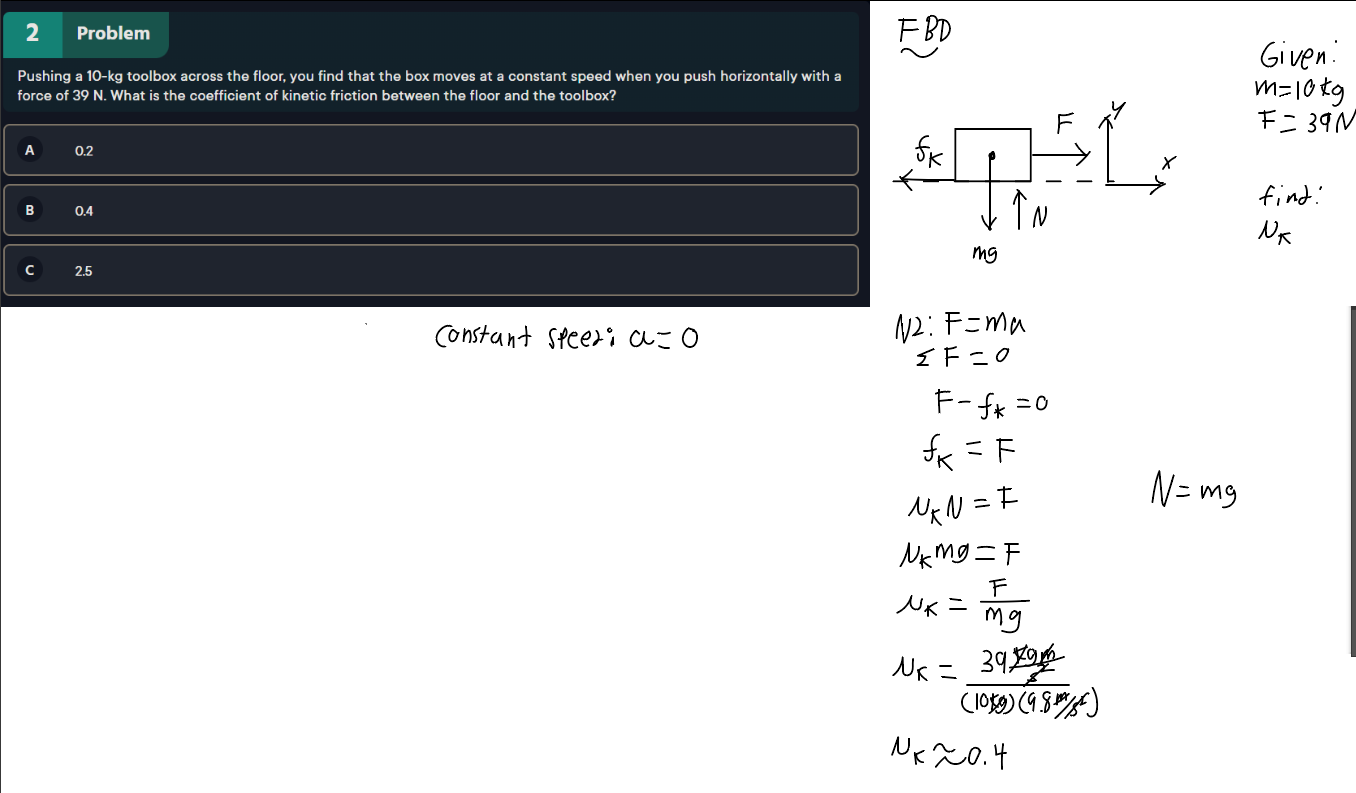 2 Problem
Pushing a 10-kg toolbox across the floor, you find that the box moves at a constant speed when you push horizontally with a
force of 39 N. What is the coefficient of kinetic friction between the floor and the toolbox?
A 0.2
B 0.4
C 2.5
Constant speed: a = 0
FBD
Given:
m=10kg
F = 39N
find:
μK
y
F
fK
x
N
mg
N2: F=ma
Σ F = 0
F - fK = 0
fK = F
μK N = F
N = mg
μK mg = F
μK = F/mg
μK = 39 kgm/s² / (10kg)(9.8 m/s²)
μK ≈ 0.4